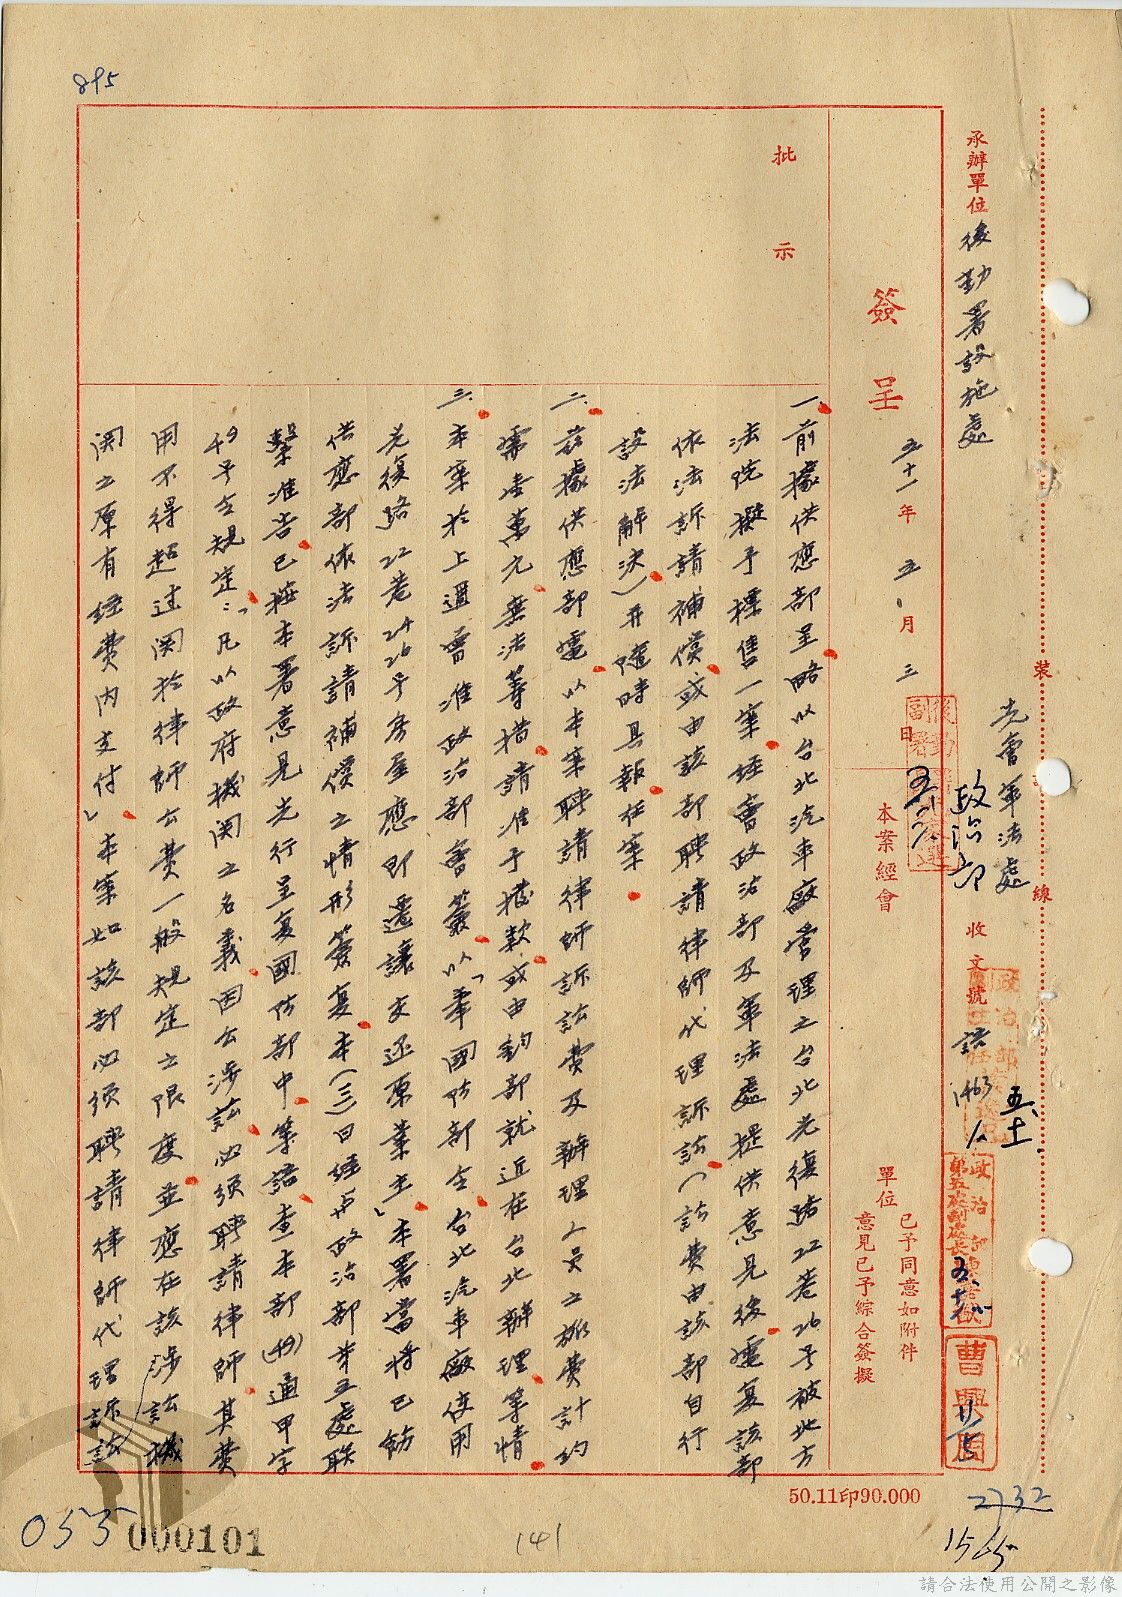 895
承辦單位 後勤署設施處
先會軍法處
政治部
收文號 1463
五、十一
曹興周
簽呈
五十一年五月三日
本案經會
單位
已予同意如附件
意見已予綜合簽擬
批示
裝訂線
一、前據供應部呈略以台北汽車廠管理之台北光復路22巷26号被地方
法院擬予標售一案經會政治部及軍法處提供意見後電复該部
依法訴請補償或由該部聘請律師代理訴訟(訟費由該部自行
設法解決)并隨時具報在案
二、茲據供應部電以本案聘請律師訴訟費及辦理人員之旅費計約
需壹萬元無法籌措請准予撥款或由鈞部就近在台北辦理等情
三、本案於上週會准政治部會簽以「奉國防部令台北汽車廠使用
光復路22巷24 26号房屋應即遷讓交还原業主」本署當將已飭
供應部依法訴請補償之情形簽复本(三)日經与政治部第五處联
繫准告已按本署意見先行呈复國防部中等語查本部(49)通甲字
49号令規定:「凡以政府機関之名義因公涉訟必須聘請律師其費
用不得超过関於律師公費一般規定之限度並應在該涉訟機
関之原有經費内支付」本案如該部必須聘請律師代理訴訟
50.11印90.000
2732
1545
055
000101
141
請合法使用公開之影像